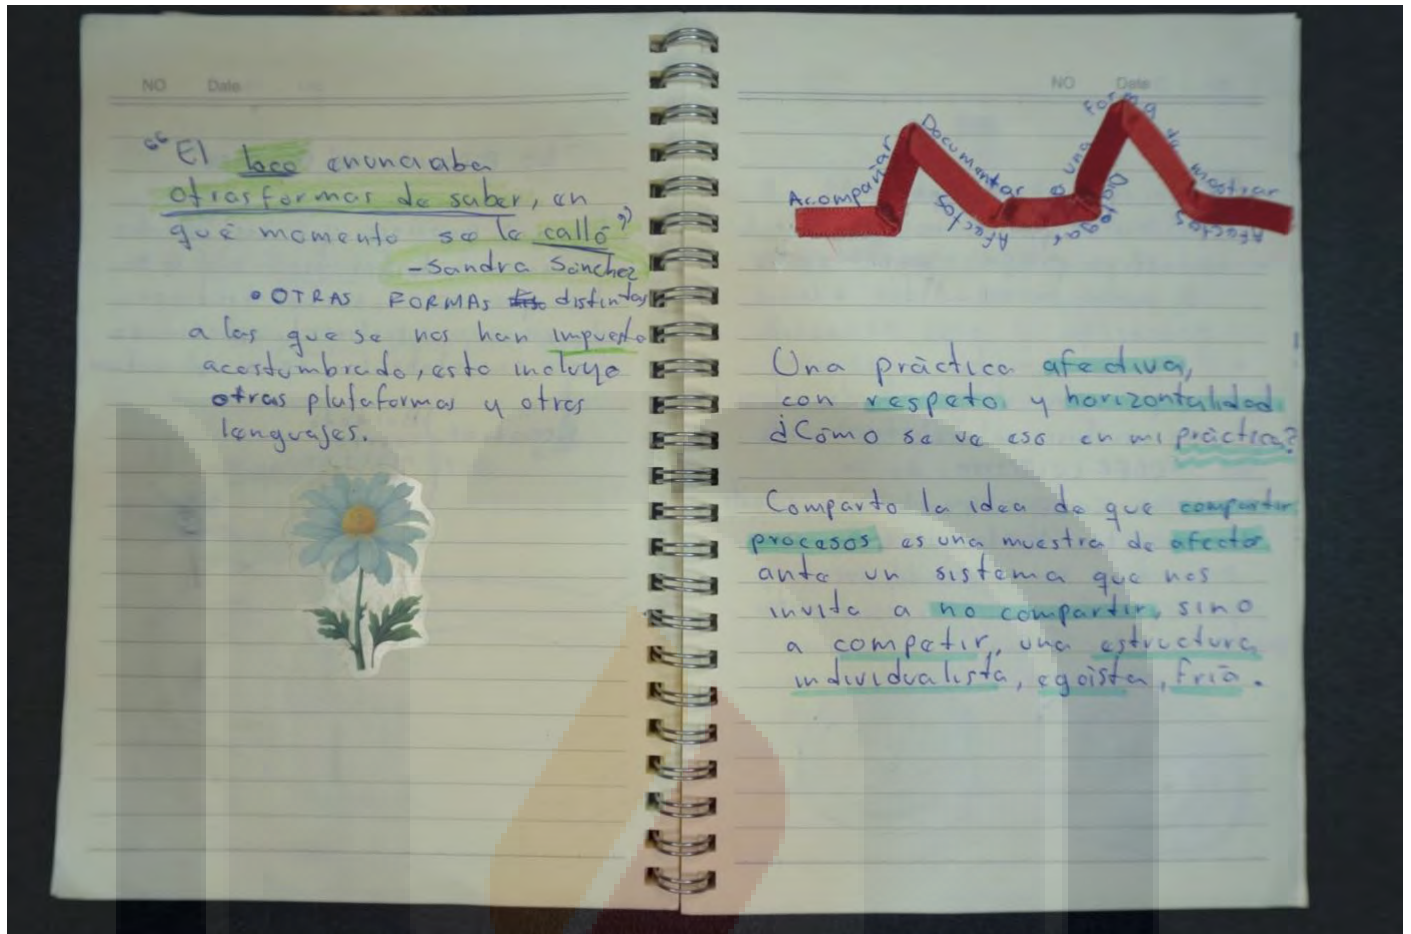 NO Date
"El loco enunciaba
otras formas de saber, en
qué momento se le calló"
-Sandra Sánchez
• OTRAS FORMAS distintas
a las que se nos han impuesto
acostumbrado, esto incluye
otras plataformas y otros
lenguajes.
NO Date
Acompañar Documentar afectos o una forma de mostrar afectos
Dialogar
Una práctica afectiva,
con respeto y horizontalidad
¿Cómo se ve eso en mi práctica?
Comparto la idea de que compartir
procesos es una muestra de afecto
ante un sistema que nos
invita a no compartir, sino
a competir, una estructura
individualista, egoísta, fría.